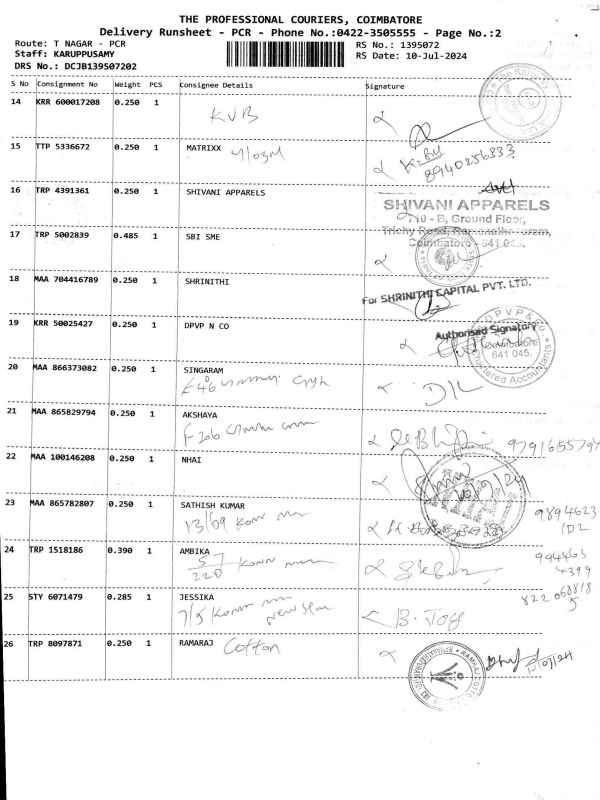 THE PROFESSIONAL COURIERS, COIMBATORE
Delivery Runsheet - PCR - Phone No.:0422-3505555 - Page No.:2
Route: T NAGAR - PCR
Staff: KARUPPUSAMY
DRS No.: DCJB139507202
RS No.: 1395072
RS Date: 10-Jul-2024
S No Consignment No Weight PCS Consignee Details Signature
14 KRR 600017208 0.250 1 KVB
15 TTP 5336672 0.250 1 MATRIXX
8940256333
16 TRP 4391361 0.250 1 SHIVANI APPARELS
SHIVANI APPARELS
710 - B, Ground Floor,
Trichy Road,
Coimbatore - 641 045.
17 TRP 5002839 0.485 1 SBI SME
18 MAA 704416789 0.250 1 SHRINITHI
For SHRINITHI CAPITAL PVT. LTD.
Authorised Signatory
19 KRR 50025427 0.250 1 DPVP N CO
DPVP & Co
Coimbatore
641 045.
Chartered Accountants
20 MAA 866373082 0.250 1 SINGARAM
D/L
21 MAA 865829794 0.250 1 AKSHAYA
F206
22 MAA 100146208 0.250 1 NHAI
23 MAA 865782807 0.250 1 SATHISH KUMAR
13/69
9894623
24 TRP 1518186 0.390 1 AMBIKA
57
220
994463
4399
25 STY 6071479 0.285 1 JESSIKA
7/5
B. Joy
822 068818
5
26 TRP 8097871 0.250 1 RAMARAJ Cotton